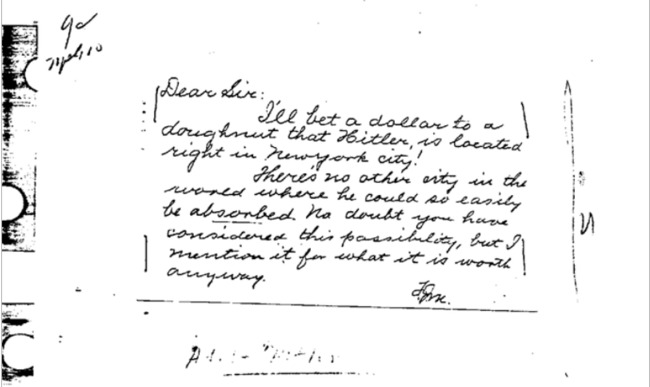 Dear Sir:
I'll bet a dollar to a
doughnut that Hitler, is located
right in New york city!
There's no other city in the
world where he could so easily
be absorbed. No doubt you have
considered this possibility, but I
mention it for what it is worth
anyway.